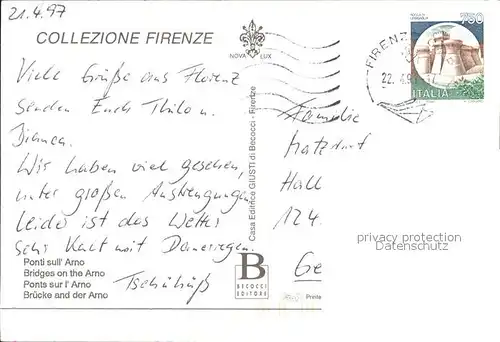 21.4.97
COLLEZIONE FIRENZE
NOVA LUX
750
ITALIA
FIRENZ
22.4.9
Viele Grüße aus Florenz
senden Euch Thilo u.
Bianca.
Wir haben viel gesehen,
unter großen Anstrengungen.
Leider ist das Wetter
sehr kalt mit Dauerregen.
Tschühüß
Ponti sull' Arno
Bridges on the Arno
Ponts sur l' Arno
Brücke and der Arno
Casa Editrice GIUSTI di Becocci - Firenze
B
BECOCCI
EDITORE
Printe
Familie
Hall
124
Ge
privacy protection
Datenschutz